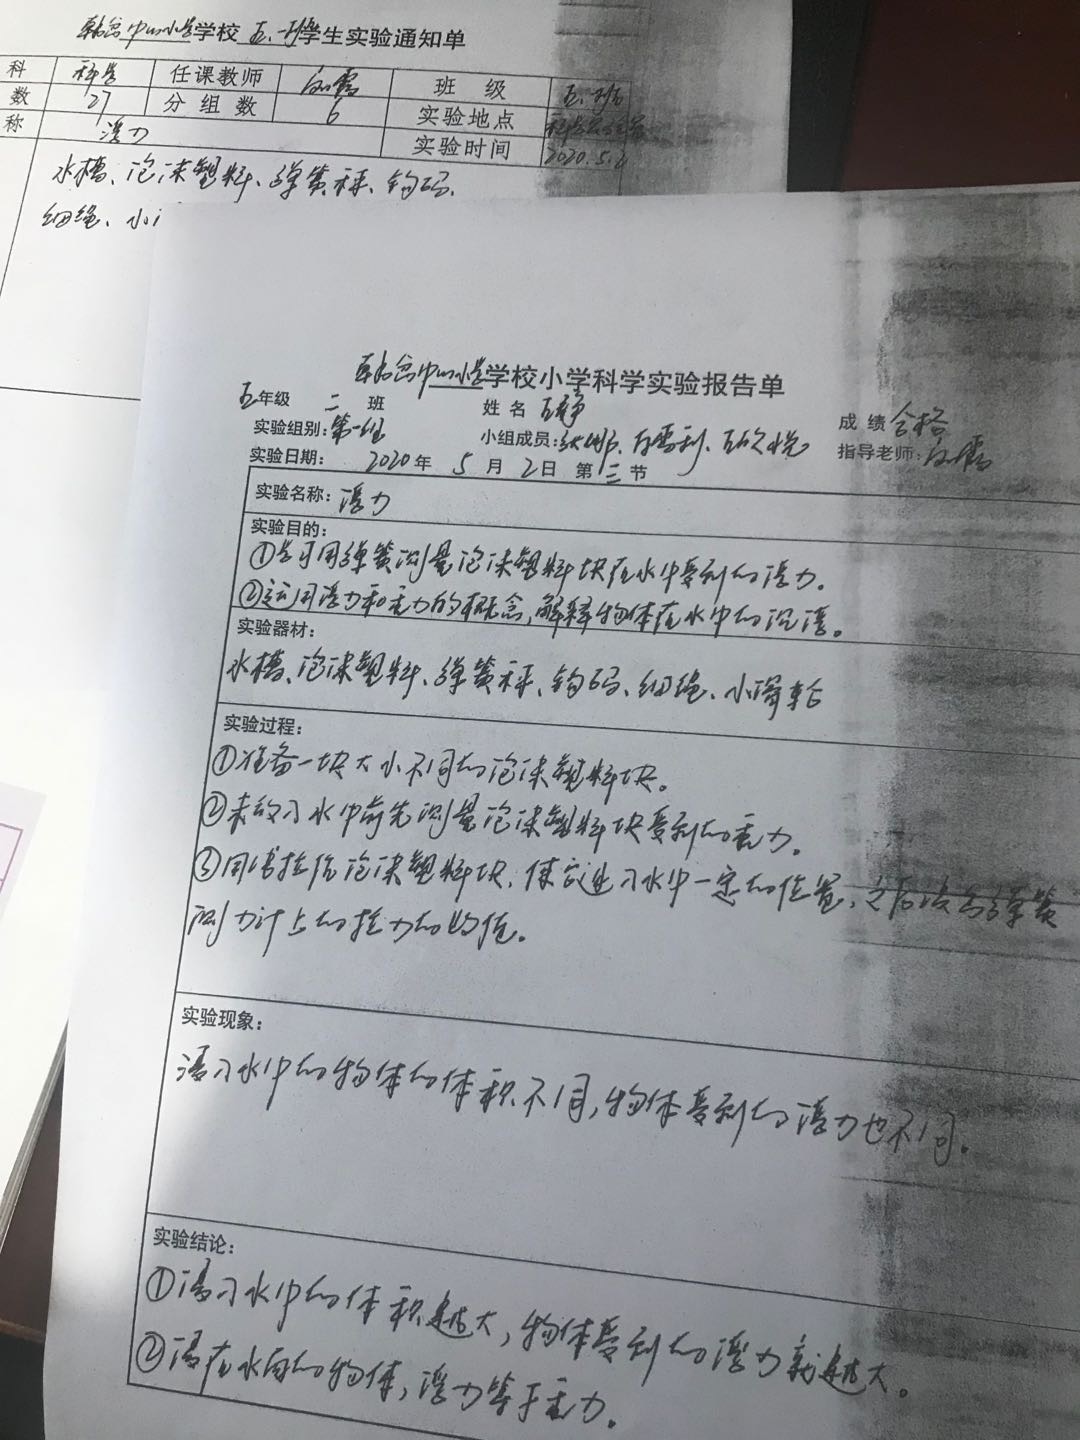 韩岔中心小学学校 五.一班学生实验通知单
科 科学 任课教师 白霞 班 级 五.一班
数 27 分组数 6 实验地点 科学实验室
称 浮力 实验时间 2020.5.2
水槽、泡沫塑料、弹簧秤、钩码、
细绳、小
韩岔中心小学学校小学科学实验报告单
五年级 二 班 姓名 成绩 合格
实验组别:第一组 小组成员: 指导老师:白霞
实验日期: 2020年 5 月 2日 第三节
实验名称:浮力
实验目的:
①学习用弹簧测量泡沫塑料块在水中受到的浮力。
②运用浮力和重力的概念,解释物体在水中的沉浮。
实验器材:
水槽、泡沫塑料、弹簧秤、钩码、细绳、小滑轮
实验过程:
①准备一块大小不同的泡沫塑料块。
②未放入水中前先测量泡沫塑料块受到的重力。
③用线拉住泡沫塑料块,使它进入水中一定的位置,之后读出弹簧
测力计上的拉力的数值。
实验现象:
浸入水中的物体的体积不同,物体受到的浮力也不同。
实验结论:
①浸入水中的体积越大,物体受到的浮力就越大。
②浮在水面的物体,浮力等于重力。